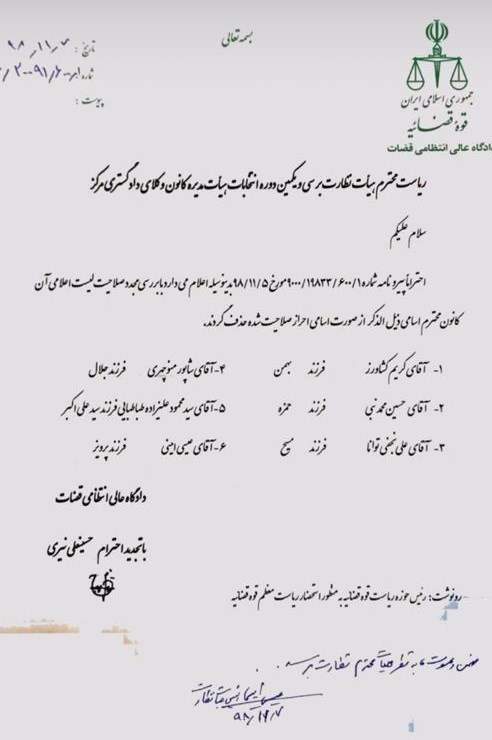 بسمه تعالی
تاریخ : ۹۸/۱۱/۷
شماره :
پیوست :
جمهوری اسلامی ایران
قوه قضائیه
دادگاه عالی انتظامی قضات
ریاست محترم هیأت نظارت بر سی و یکمین دوره انتخابات هیأت مدیره کانون وکلای دادگستری مرکز
سلام علیکم
احتراماً پیرو نامه شماره ۹۰۰۰/۱۹۸۳۳/۶۰۰/۱ مورخ ۹۸/۱۱/۵ بدینوسیله اعلام می دارد با بررسی مجدد صلاحیت لیست اعلامی آن
کانون محترم اسامی ذیل الذکر از صورت اسامی احراز صلاحیت شده حذف گردند.
۱- آقای کریم کشاورز فرزند بهمن ۴- آقای شاپور منوچهری فرزند جلال
۲- آقای حسین محمدنبی فرزند حمزه ۵- آقای سید محمود علیزاده طباطبایی فرزند سید علی اکبر
۳- آقای علی نجفی توانا فرزند مسیح ۶- آقای عیسی امینی فرزند پرویز
دادگاه عالی انتظامی قضات
با تجدید احترام حسینعلی نیری
رونوشت: رئیس حوزه ریاست قوه قضائیه به منظور استحضار ریاست معظم قوه قضائیه
به نظر هیأت محترم نظارت برسد.